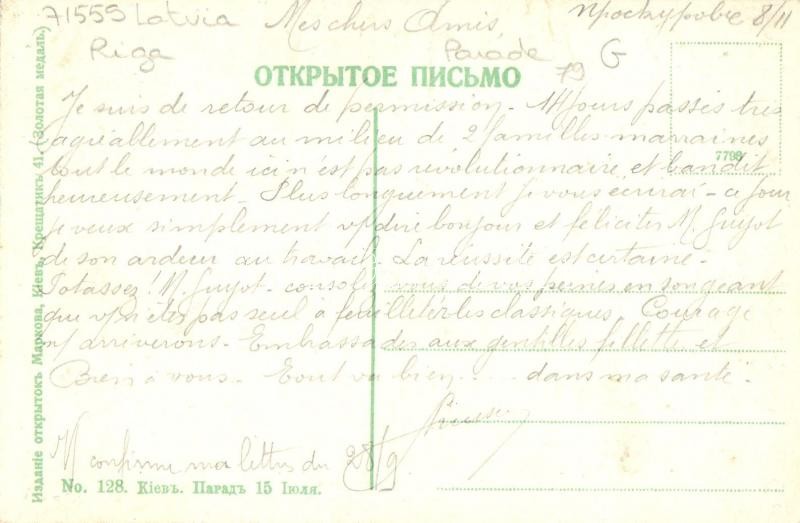 71555 Latvia Mes chers Amis, Проскуровъ 8/11
Riga Parade 79 G
ОТКРЫТОЕ ПИСЬМО
Je suis de retour de permission. 14 jours passés très
agréablement au milieu de 2 familles marraines
tout le monde ici n'est pas révolutionnaire et bandit
7798
heureusement. Plus longuement je vous écrirai. ce jour
je veux simplement vs dire bonjour et féliciter M. Guyot
de son ardeur au travail. La réussite est certaine.
Potassez! M. Guyot. consolez vous de vos peines en songeant
que vs n'êtes pas seul à feuilleter les classiques. Courage
ns arriverons. Embrassades aux gentilles fillette et
Bien à vous. Tout va bien.... dans ma santé.
confirme ma lettre du 28/9
No. 128. Кіевъ. Парадъ 15 Іюля.
Изданіе открытокъ Маркова, Кіевъ, Крещатикъ 41. (Золотая медаль)